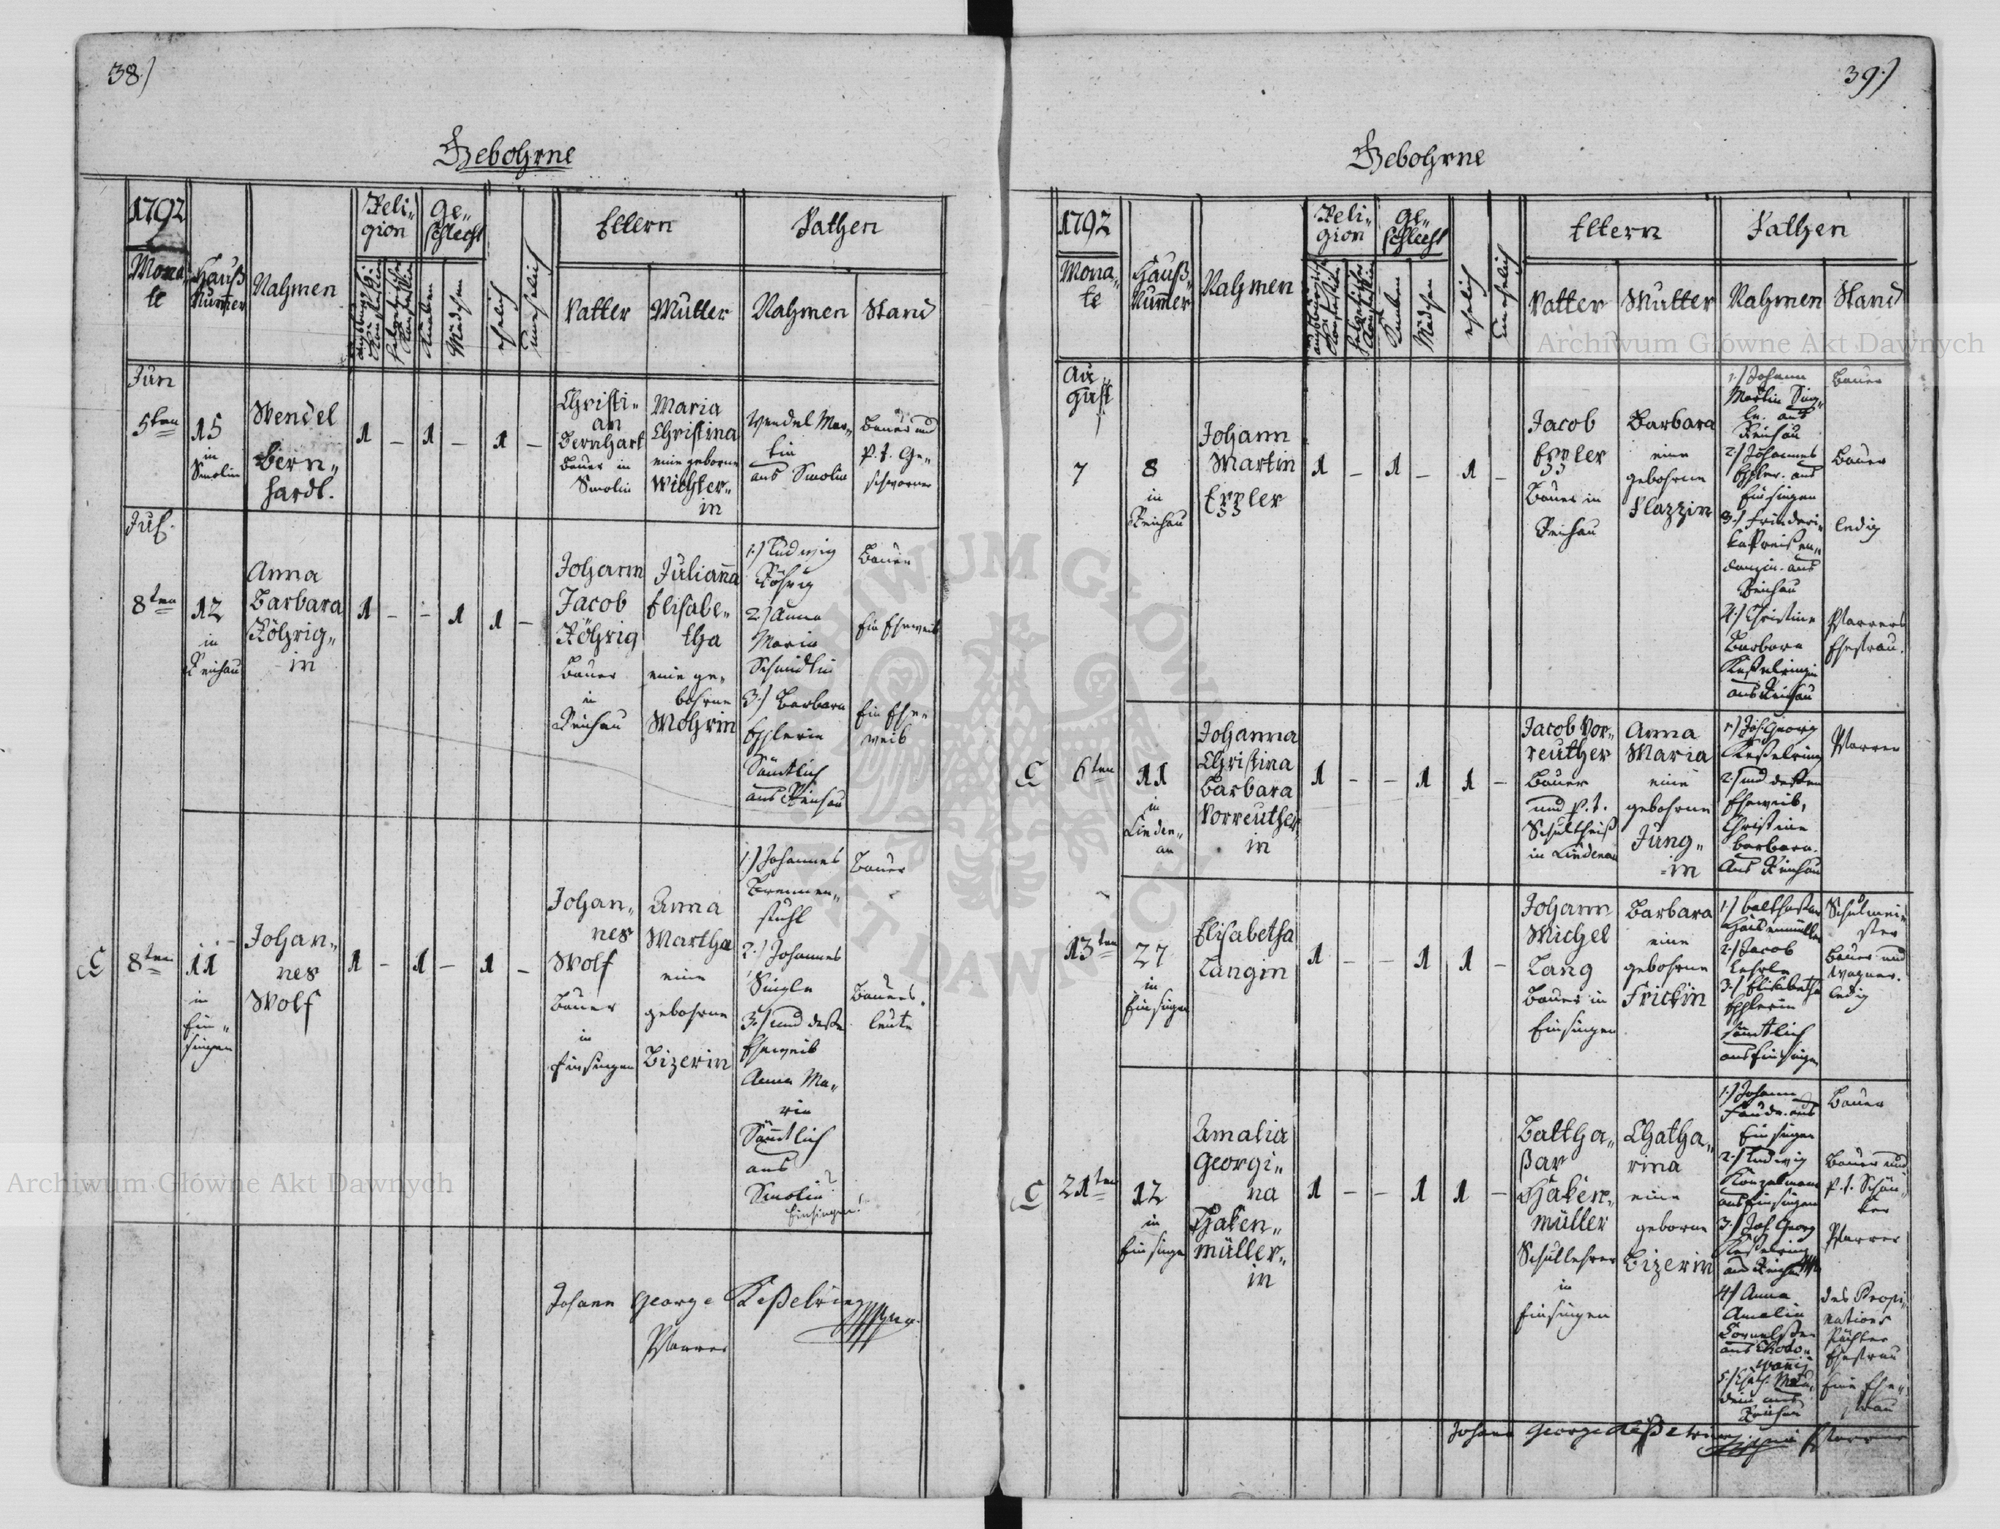 38)
Gebohrne
1792
Mona-
te
Hauß
Numer
Nahmen
Reli-
gion
Ge-
schlecht
Knaben
Mädchen
ehelich
Unehelich
Eltern
Vatter
Mutter
Pathen
Nahmen
Stand
Jun
5ten
15
in
Smolin
Wendel
Bern-
hardt.
1 - 1 - 1 -
Christi-
an
Bernhart
Bauer in
Smolin
Maria
Christina
eine geborne
Wichter-
in
Wendel Mar-
tin
aus Smolin
Bauer und
p. t. Ge-
schworner
Jul.
8ten
12
in
Reichau
Anna
Barbara
Röhrig-
in
1 - - 1 1 -
Johann
Jacob
Röhrig
Bauer
in
Reichau
Julianna
Elisabe-
tha
eine ge-
bohrne
Mohrin
1.) Ludwig
Röhrig
2.) Anna
Maria
Schmidtin
3.) Barbara
Epplerin
Sämtlich
aus Reichau
Bauer
Ein Eheweib
Ein Ehe-
weib
C
8ten
11
in
Ein-
singen
Johan-
nes
Wolf
1 - 1 - 1 -
Johan-
nes
Wolf
Bauer
in
Einsingen
Anna
Martha
eine
gebohrne
Bizerin
1.) Johannes
Bremen-
stuhl
2.) Johannes
Single
3.) und deßen
Eheweib
Anna Ma-
ria
Sämtlich
aus
Smolin?
Einsingen!
Bauer
Bauers-
leute
Johann George Keßelring
Pfarrer
39)
Gebohrne
1792
Mona-
te
Hauß
Numer
Nahmen
Reli-
gion
Ge-
schlecht
Knaben
Mädchen
ehelich
Unehelich
Eltern
Vatter
Mutter
Pathen
Nahmen
Stand
Au
gust
7
8
in
Reichau
Johann
Martin
Eppler
1 - 1 - 1 -
Jacob
Eppler
Bauer in
Reichau
Barbara
eine
gebohrne
Plazzin
1.) Johann
Martin Sing-
le. aus
Reichau
2.) Johannes
Eppler. aus
Einsingen
3.) Friederi-
ka Preißen-
danzin. aus
Reichau
4.) Christine
Barbara
Keßelringin
aus Reichau
Bauer
Bauer
ledig
Pfarrers
Ehefrau.
C
6ten
11
in
Linden-
au
Johanna
Christina
Barbara
Vorreuther
in
1 - - 1 1 -
Jacob Vor-
reuther
Bauer
und p. t.
Schultheiß
in Lindenau
Anna
Maria
eine
gebohrne
Jung-
in
1.) Joh. Georg
Keßelring
2.) und deßen
Eheweib,
Christine
Barbara.
aus Reichau
Pfarrer
13ten
27
in
Einsingen
Elisabetha
Langin
1 - - 1 1 -
Johann
Michel
Lang
Bauer in
Einsingen
Barbara
eine
gebohrne
Frickin
1.) Balthasar
Hakenmüller
2.) Jacob
Lehrle
3.) Elisabetha
Epplerin
sämtlich
aus Einsingen
Schulmei-
ster
Bauer und
Wagner.
ledig
C
21ten
12
in
Einsingen
Amalia
Georgi-
na
Haken-
müller-
in
1 - - 1 1 -
Baltha-
ßar
Haken-
müller
Schullehrer
in
Einsingen
Chatha-
rina
eine
geborne
Bizerin
1.) Johann
aus
Einsingen
2.) Ludwig
Konzelmann
aus Einsingen
3.) Joh. Georg
Keßelring
aus Reichau
4.) Anna
Amalia
aus
5.)
aus
Reichau
Bauer
Bauer und
p. t. Schän-
ker
Pfarrer
des Propi-
nations
Pächter
Ehefrau
Eine Ehe-
frau
Johann George Keßelring Pfarrer
Archiwum Główne Akt Dawnych
Archiwum Główne Akt Dawnych
ARCHIWUM GŁÓWNE AKT DAWNYCH